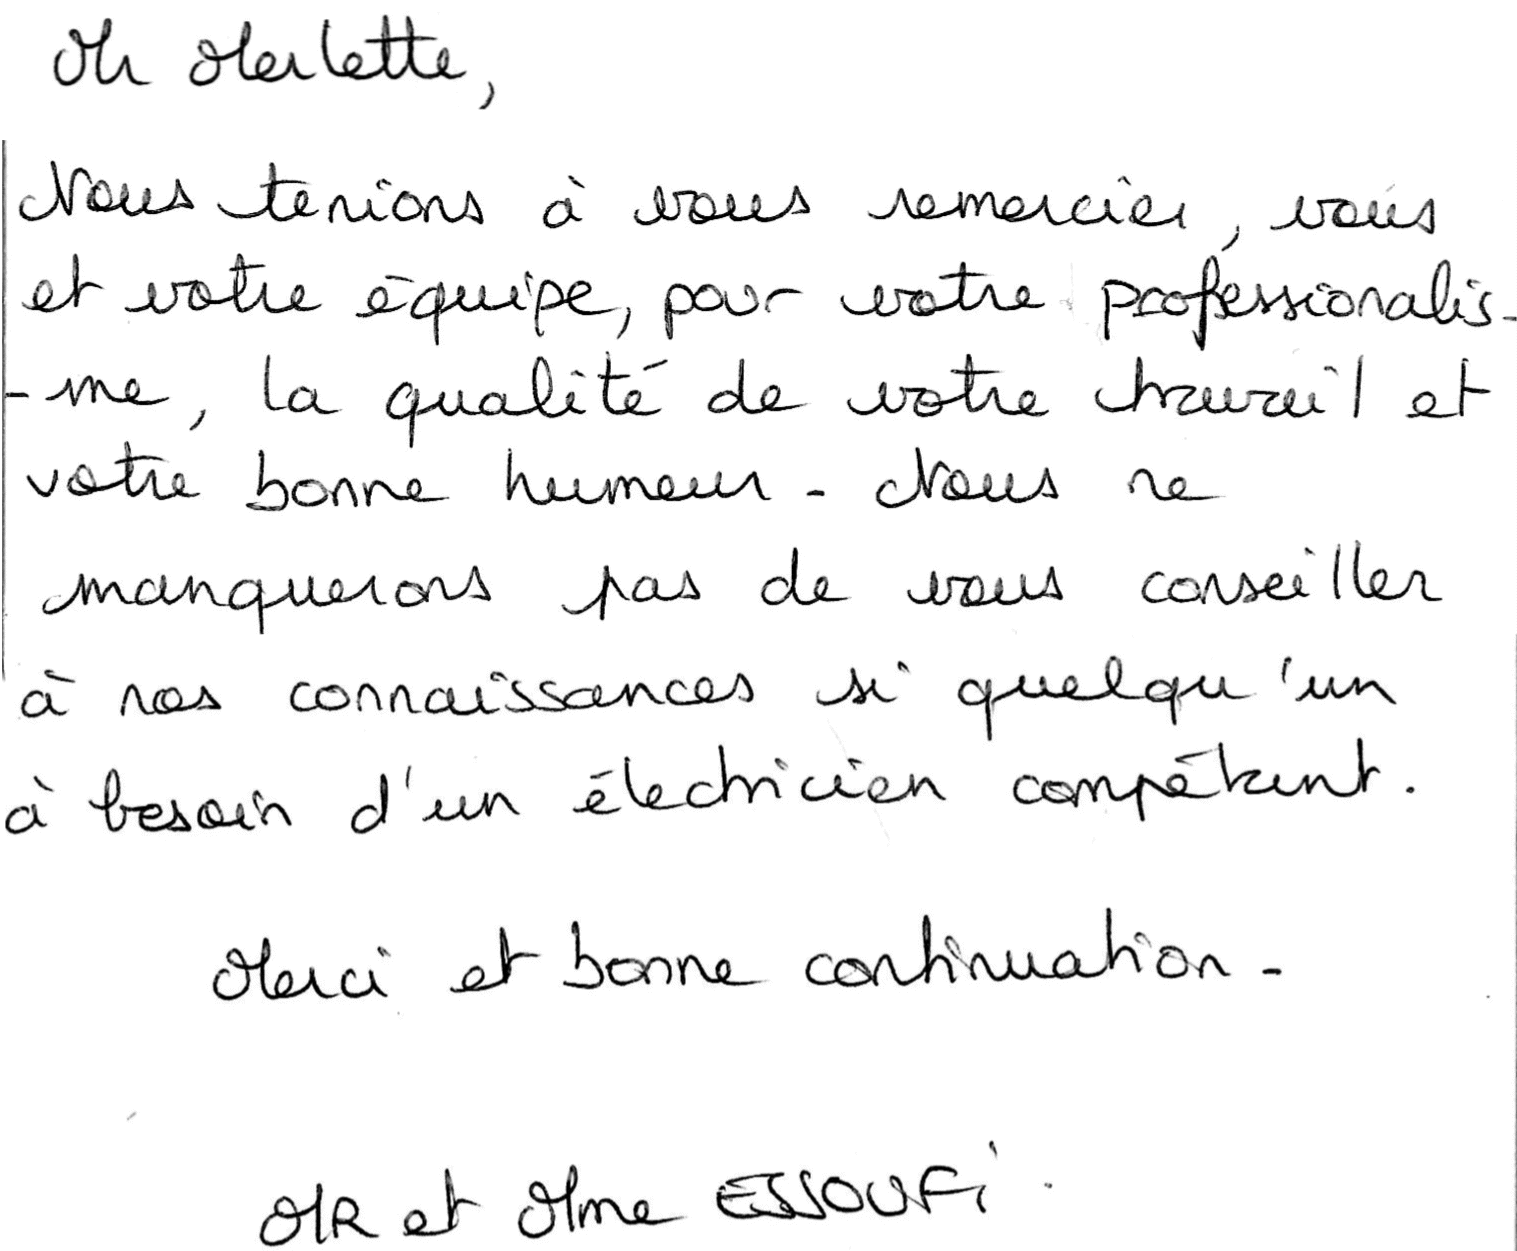 Mr Merlette,
Nous tenions à vous remercier, vous
et votre équipe, pour votre professionalis-
-me, la qualité de votre travail et
votre bonne humeur. Nous ne
manquerons pas de vous conseiller
à nos connaissances si quelqu'un
à besoin d'un électricien compétent.
Merci et bonne continuation.
MR et Mme ESSOUFi.